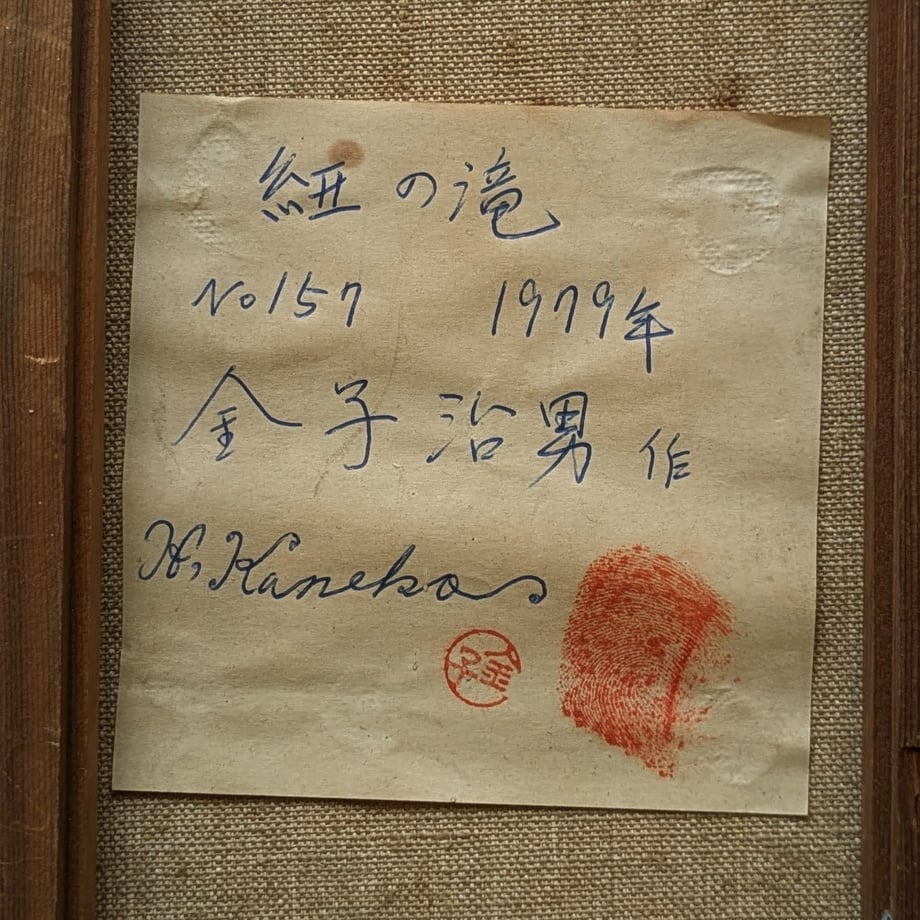 紐の滝
No157 1979年
金子治男 作
H, Kaneko
金子